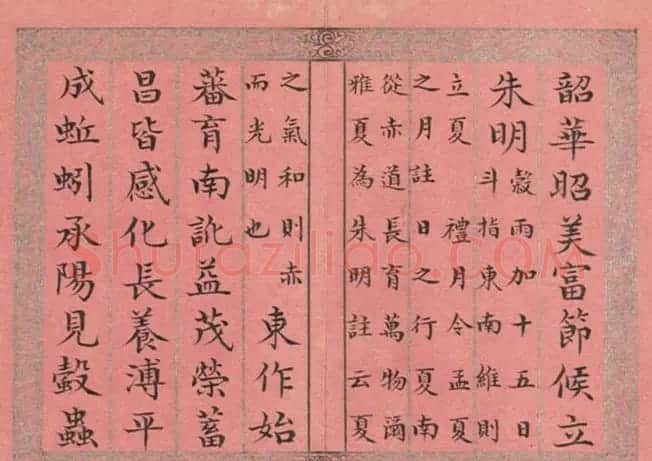 韶華昭美富節候立
朱明
穀雨加十五日
斗指東南維則
立夏 禮月令孟夏
之月註日之行夏南
從赤道長育萬物爾
雅夏為朱明註云夏
之氣和則赤
而光明也
東作始
蕃育南訛益茂榮蓄
昌皆感化長養溥平
成蚯蚓承陽見螜蟲
shufaziliao.COM